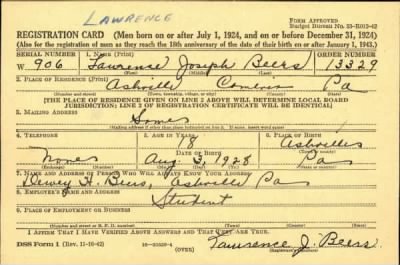 LAWRENCE
FORM APPROVED
Budget Bureau No. 33-R012-42
REGISTRATION CARD (Men born on or after July 1, 1924, and on or before December 31, 1924)
(Also for the registration of men as they reach the 18th anniversary of the date of their birth on or after January 1, 1943.)
SERIAL NUMBER 1. NAME (Print) ORDER NUMBER
W 906 Lawrense Joseph Beers 13329
(First) (Middle) (Last)
2. PLACE OF RESIDENCE (Print)
Ashville Cambria Pa
(Number and street) (Town, township, village, or city) (County) (State)
[THE PLACE OF RESIDENCE GIVEN ON LINE 2 ABOVE WILL DETERMINE LOCAL BOARD
JURISDICTION; LINE 2 OF REGISTRATION CERTIFICATE WILL BE IDENTICAL]
3. MAILING ADDRESS
Same
(Mailing address if other than place indicated on line 2. If same, insert word same)
4. TELEPHONE 5. AGE IN YEARS 6. PLACE OF BIRTH
18 Ashville
DATE OF BIRTH (Town or county)
None Aug 3, 1928 Pa
(Exchange) (Number) (Mo.) (Day) (Yr.) (State or country)
7. NAME AND ADDRESS OF PERSON WHO WILL ALWAYS KNOW YOUR ADDRESS
Dewey H. Beers, Ashville Pa
8. EMPLOYER'S NAME AND ADDRESS
Student
9. PLACE OF EMPLOYMENT OR BUSINESS
(Number and street or R. F. D. number) (Town) (County) (State)
I AFFIRM THAT I HAVE VERIFIED ABOVE ANSWERS AND THAT THEY ARE TRUE.
DSS Form 1 (Rev. 11-16-42) (OVER) Lawrence J. Beers
(Registrant's signature)